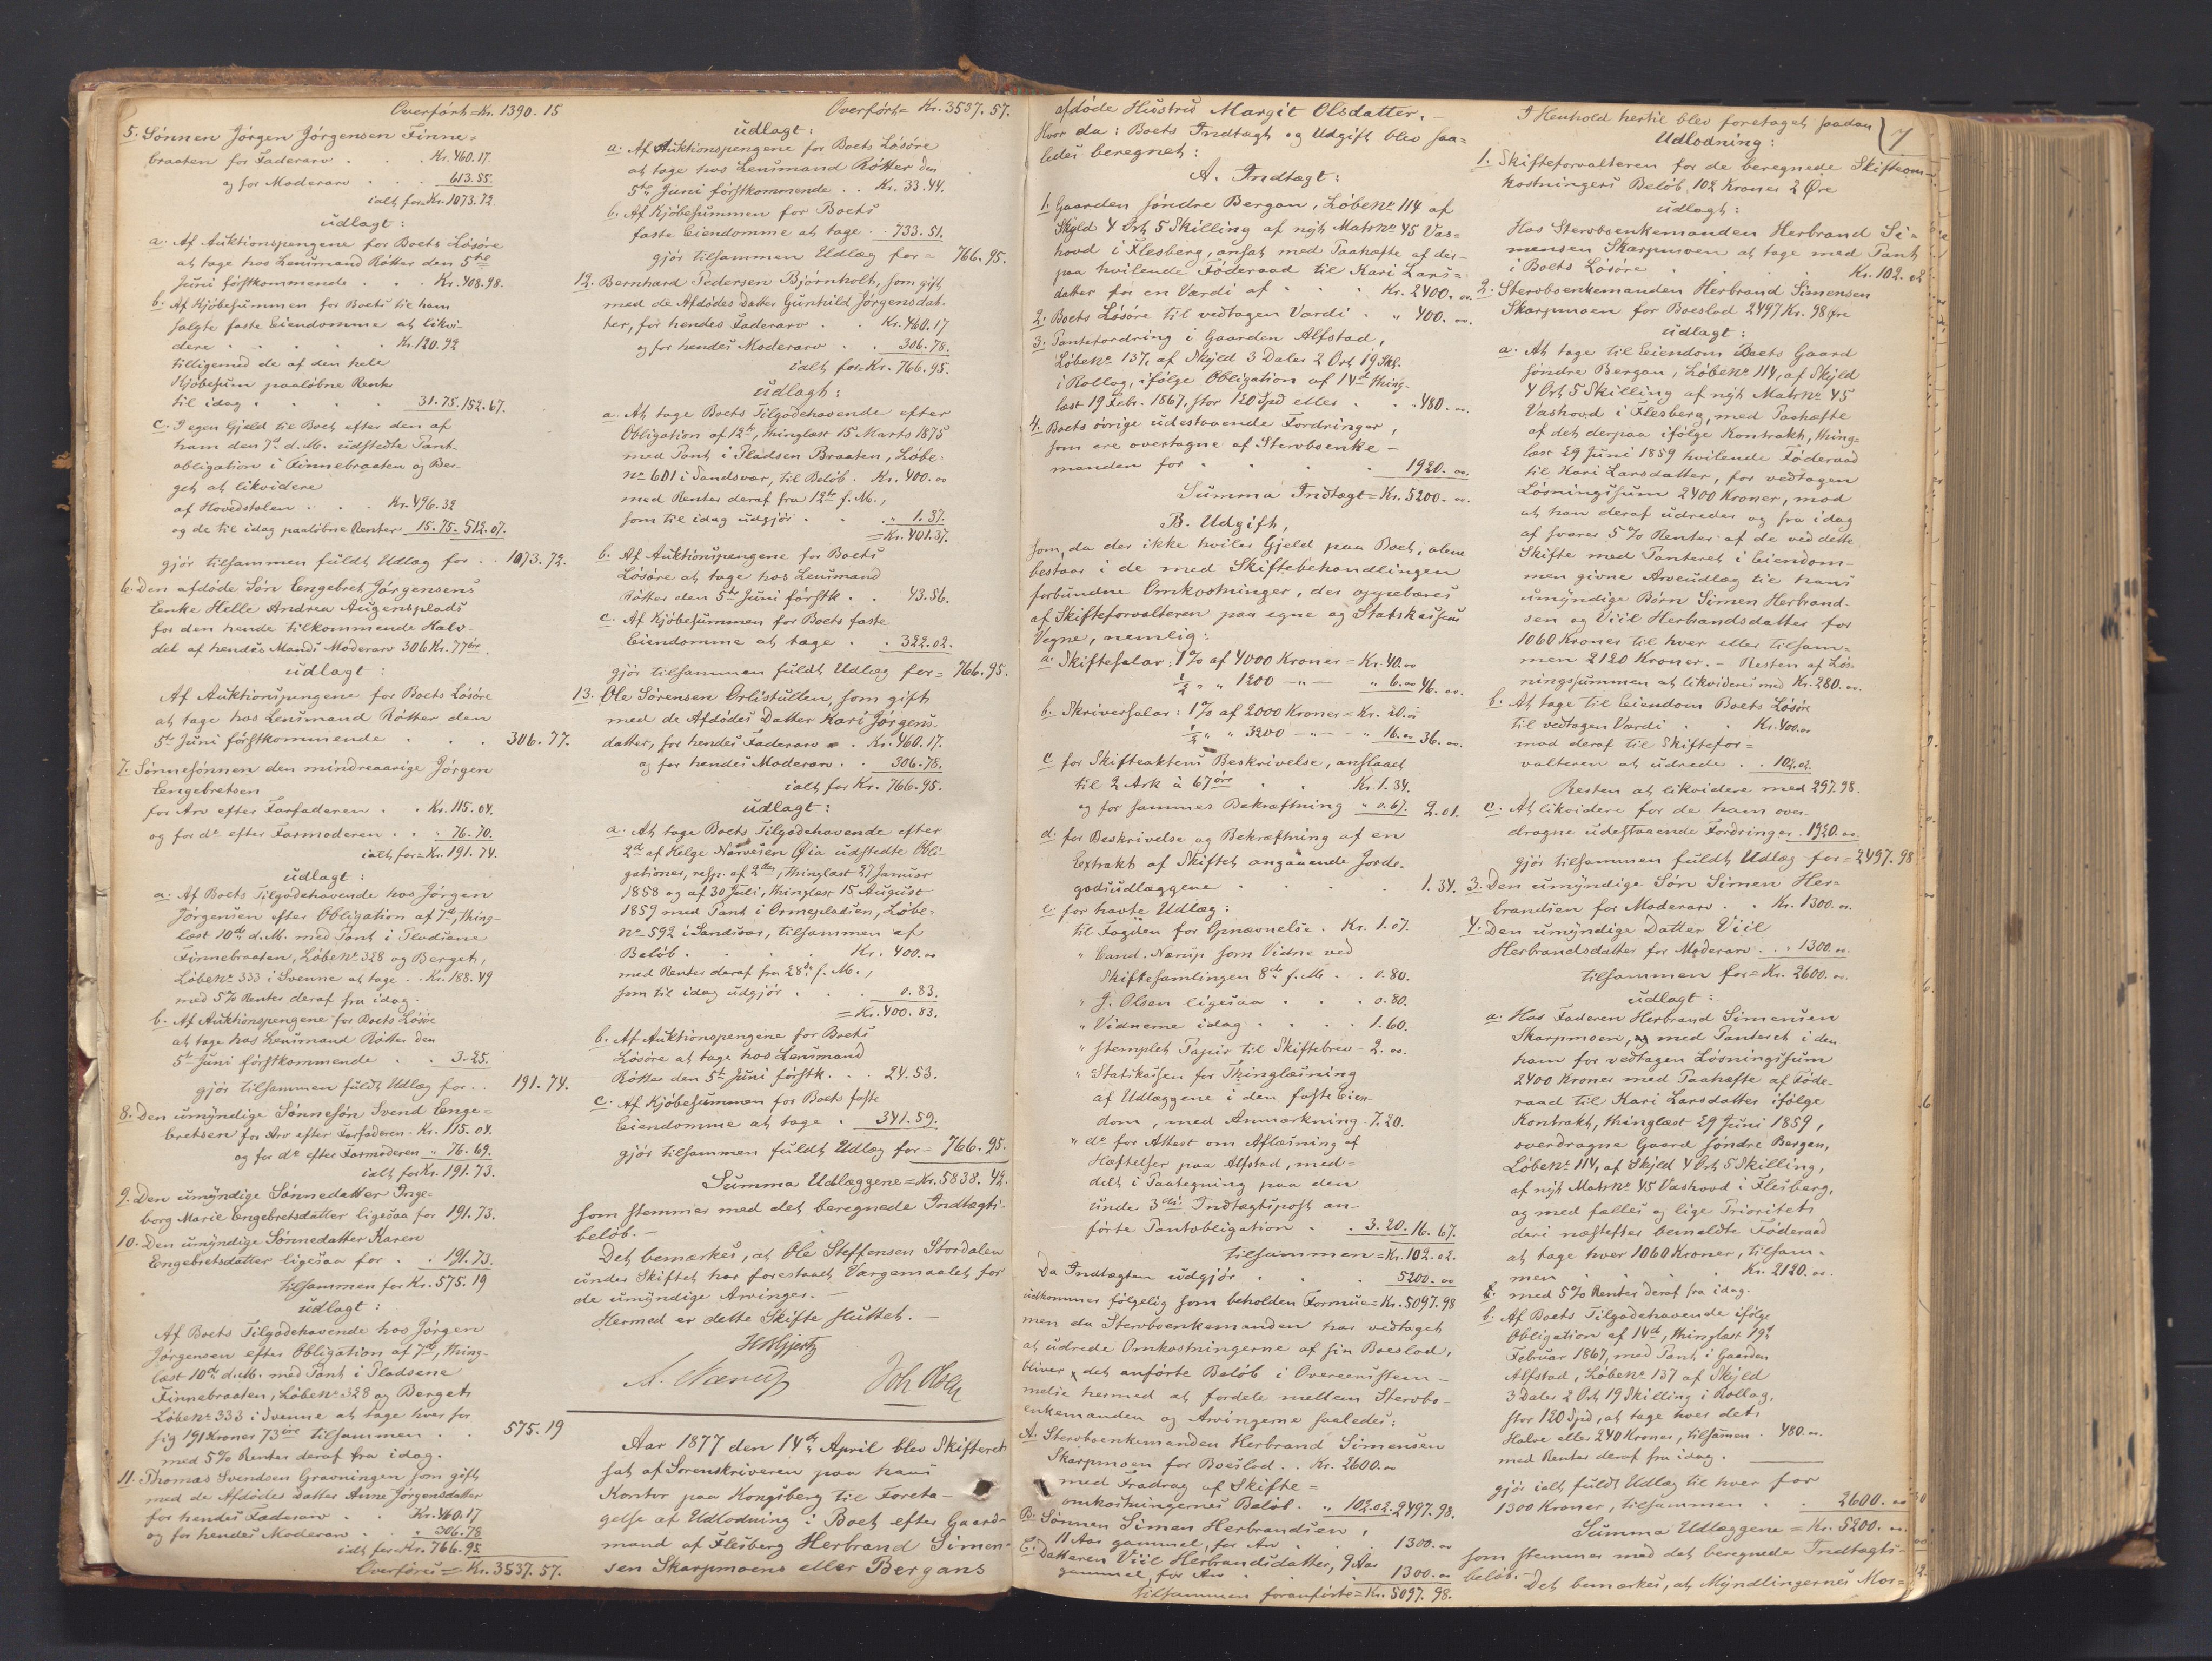 Overført = Kr. 1390.15
5. Sønnen Jørgen Jørgensen Finne-
braaten for Faderarv . . Kr. 460.17.
og for Moderarv . . 613.55.
ialt for Kr. 1073.72.
udlagt:
a. Af Auktionspengene for Boets Løsøre
at tage hos Lensmand Røtter den 5te
Juni førstkommende . . Kr. 408.98.
b. Af Kjøbesummen for Boets til ham
solgte faste Eiendomme at likvi-
dere . . . Kr. 120.92
tilligemed de af den hele
Kjøbesum paaløbne Rente
til idag . . . 31.75. 152.67.
c. I egen Gjeld til Boet efter den af
ham den 7d d.M. udstedte Pant-
obligation i Finnebraaten og Ber-
get at likvidere
af Hovedstolen . . Kr. 496.32
og de til idag paaløbne Renter 15.75. 512.07.
gjør tilsammen fuldt Udlæg for . . 1073.72.
6. Den afdøde Søn Engebret Jørgensens
Enke Helle Andrea Augensplads
for den hende tilkommende Halv-
del af hendes Mands Moderarv 306 Kr. 77 øre.
udlagt:
Af Auktionspengene for Boets Løsøre
at tage hos Lensmand Røtter den
5te Juni førstkommende . . . 306.77.
7. Sønnesønnen den mindreaarige Jørgen
Engebretsen
for Arv efter Farfaderen . . Kr. 115.04.
og for do efter Farmoderen . . " 76.70.
ialt for = Kr. 191.74.
udlagt:
a. Af Boets Tilgodehavende hos Jørgen
Jørgensen efter Obligation af 7d, thing-
læst 10de d.M. med Pant i Pladsene
Finnebraaten, Løbe No 328 og Berget,
Løbe No 333 i Svenne at tage . . Kr. 188.49
med 5% Renter deraf fra idag.
b. Af Auktionspengene for Boets Løsøre
at tage hos Lensmand Røtter den
5te Juni førstkommende . . 3.25.
gjør tilsammen fuldt Udlæg for . . 191.74.
8. Den umyndige Sønnesøn Svend Enge-
bretsen for Arv efter Farfaderen . Kr. 115.04.
og for do efter Farmoderen " 76.69.
ialt for Kr. 191.73.
9. Den umyndige Sønnedatter Inge-
borg Marie Engebretsdatter ligesaa for 191.73.
10. Den umyndige Sønnedatter Karen
Engebretsdatter ligesaa for . . 191.73.
tilsammen for Kr. 575.19
udlagt:
Af Boets Tilgodehavende hos Jørgen
Jørgensen efter Obligation af 7d, thing-
læst 10de d.M. med Pant i Pladsene
Finnebraaten, Løbe No 328 og Berget,
Løbe No 333 i Svenne at tage hver for
sig 191 Kroner 73 øre tilsammen . . 575.19
med 5% Renter deraf fra idag.
11. Thomas Svendsen Gravningen som gift
med de Afdødes Datter Anne Jørgensdatter
for hendes Faderarv . . Kr. 460.17
og for hendes Moderarv . . " 306.78
ialt for = Kr. 766.95
Overføres = Kr. 3537.57.
Overført = Kr. 3537.57.
udlagt:
a. Af Auktionspengene for Boets Løsøre
at tage hos Lensmand Røtter den
5te Juni førstkommende . . Kr. 33.44.
b. Af Kjøbesummen for Boets
faste Eiendomme at tage . . 733.51.
gjør tilsammen Udlæg for = 766.95.
12. Bernhard Pedersen Bjørnholt, som gift
med de Afdødes Datter Gunhild Jørgensdat-
ter, for hendes Faderarv . . Kr. 460.17
og for hendes Moderarv . . 306.78.
ialt for = Kr. 766.95.
udlagt:
a. At tage Boets Tilgodehavende efter
Obligation af 12te, thinglæst 15 Marts 1875
med Pant i Pladsen Braaten, Løbe-
No 601 i Sandsvær, til Beløb . Kr. 400.00
med Renter deraf fra 12te f.M.,
som til idag udgjør . . . " 1.37.
= Kr. 401.37.
b. Af Auktionspengene for Boets
Løsøre at tage hos Lensmand
Røtter den 5te Juni førstk. . . 43.56.
c. Af Kjøbesummen for Boets faste
Eiendomme at tage . . 322.02.
gjør tilsammen fuldt Udlæg for = 766.95.
13. Ole Sørensen Orlistullen som gift
med de Afdødes Datter Kari Jørgens-
datter, for hendes Faderarv . . Kr. 460.17.
og for hendes Moderarv . . 306.78.
ialt for Kr. 766.95.
udlagt:
a. At tage Boets Tilgodehavende efter
2de af Helge Narvesen Øia udstedte Obli-
gationer, resp. af 2den, thinglæst 27 Januar
1858 og af 30 Juli, thinglæst 15 August
1859 med Pant i Ormepladsen, Løbe-
No 592 i Sandsvær, tilsammen af
Beløb . . . . Kr. 400.00
med Renter deraf fra 28de f.M.,
som til idag udgjør . . . 0.83.
= Kr. 400.83.
b. Af Auktionspengene for Boets
Løsøre at tage hos Lensmand
Røtter den 5te Juni førstk. . . 24.53.
c. Af Kjøbesummen for Boets faste
Eiendomme at tage . 341.59.
gjør tilsammen fuldt Udlæg for = 766.95.
Summa Udlæggene = Kr. 5838.42.
som stemmer med det beregnede Indtægts-
beløb. –
Det bemærkes, at Ole Steffensen Stordalen
under Skiftet har forestaaet Værgemaalet for
de umyndige Arvinger. –
Hermed er dette Skifte sluttet. –
A. Nærup Joh Olsen
Aar 1877 den 14de April blev Skifteret
sat af Sorenskriveren paa hans
Kontor paa Kongsberg til Foreta-
gelse af Udlodning i Boet efter Gaard-
mand af Flesberg Herbrand Simen-
sen Skarpmoens eller Bergans
afdøde Hustru Margit Olsdatter. –
Hvor da: Boets Indtægt og Udgift blev saa-
ledes beregnet:
A. Indtægt:
1. Gaarden søndre Bergan, Løbe No 114 af
Skyld 4 Ort 5 Skilling af nyt Matr No 45 Vas-
hovd i Flesberg, ansat med Paahæfte af der-
paa hvilende Føderaad til Kari Lars-
datter for en Værdi af . . . Kr. 2400.00.
2. Boets Løsøre til vedtagen Værdi . " 400.00.
3. Pantefordring i Gaarden Alfstad,
Løbe No 137, af Skyld 3 Daler 2 Ort 19 Sk.
i Rollag, ifølge Obligation af 14de thing-
læst 19 Febr. 1867, stor 120 Spd eller . . " 480.00.
4. Boets øvrige udestaaende Fordringer,
som ere overtagne af Stervboenke-
manden for . . . . 1920.00.
Summa Indtægt = Kr. 5200.00.
B. Udgift,
som, da der ikke hviler Gjeld paa Boet, alene
bestaar i de med Skiftebehandlingen
forbundne Omkostninger, der oppebæres
af Skifteforvalteren paa egne og Statskassens
Vegne, nemlig:
a. Skiftesalær: 1% af 4000 Kroner = Kr. 40.00
1/2 " " 1200 –"– " 6.00 46.00.
b. Skriversalær: 1% af 2000 Kroner = Kr. 20.00
1/2 " " 3200 –"– " 16.00 36.00.
c for Skifteaktens Beskrivelse, anslaaet
til 2 Ark à 67 øre . . Kr. 1.34.
og for sammes Bekræftning " 0.67. 2.01.
d. for Beskrivelse og Bekræftning af en
Extrakt af Skiftet angaaende Jorde-
godsudlæggene . . . . 1.34.
e. for havte Udlæg:
til Fogden for Opnævnelse . Kr. 1.07.
" Cand. Nærup som Vidne ved
Skiftesamlingen 8de f.M. . . 0.80.
" J. Olsen ligesaa . . . 0.80.
" Vidnerne idag . . . . 1.60.
" stemplet Papir til Skiftebrev – 2.00.
" Statskassen for Thinglæsning
af Udlæggene i den faste Eien-
dom, med Anmærkning . 7.20.
" do for Attest om Aflæsning af
Hæftelser paa Alfstad, med-
delt i Paategning paa den
under 3die Indtægtspost an-
førte Pantobligation . . 3.20. 16.67.
tilsammen = Kr. 102.02.
Da Indtægten udgjør . . . 5200.00
udkommer følgelig som beholden Formue = Kr. 5097.98
men da Stervboenkemanden har vedtaget
at udrede Omkostningerne af sin Boeslod,
bliver det anførte Beløb i Overensstem-
melse hermed at fordele mellem Stervbo-
enkemanden og Arvingerne saaledes:
A. Stervboenkemanden Herbrand Simensen
Skarpmoen for Boeslod . . Kr. 2600.00
med Fradrag af Skifte-
omkostningernes Beløb . " 102.02. 2497.98.
B. Sønnen Simen Herbrandsen,
11 Aar gammel, for Arv . . . 1300.00
C. Datteren Viil Herbrandsdatter, 9 Aar
gammel, for Arv . . . 1300.00
tilsammen foranførte = Kr. 5097.98.
7
I Henhold hertil blev foretaget saadan
Udlodning:
1. Skifteforvalteren for de beregnede Skifteom-
kostningers Beløb, 102 Kroner 2 Øre
udlagt:
Hos Stervboenkemanden Herbrand Si-
mensen Skarpmoen at tage med Pant
i Boets Løsøre . . . Kr. 102.02
2. Stervboenkemanden Herbrand Simensen
Skarpmoen for Boeslod 2497 Kr. 98 Øre
udlagt:
a. At tage til Eiendom Boets Gaard
søndre Bergan, Løbe No 114, af Skyld
4 Ort 5 Skilling af nyt Matr No 45
Vashovd i Flesberg, med Paahæfte
af det derpaa ifølge Kontrakt, thing-
læst 29 Juni 1859 hvilende Føderaad
til Kari Larsdatter, for vedtagen
Løsningssum 2400 Kroner, mod
at han deraf udreder og fra idag
af svarer 5% Renter af de ved dette
Skifte med Panteret i Eiendom-
men givne Arveudlæg til hans
umyndige Børn Simen Herbrand-
sen og Viil Herbrandsdatter for
1060 Kroner til hver eller tilsam-
men 2120 Kroner. – Resten af Løs-
ningssummen at likvideres med Kr. 280.00.
b. At tage til Eiendom Boets Løsøre
til vedtagen Værdi . . Kr. 400.00
mod deraf til Skiftefor-
valteren at udrede . . 102.02.
Resten at likvidere med 297.98.
c. At likvidere for de ham over-
dragne udestaaende Fordringer . 1920.00.
gjør tilsammen fuldt Udlæg for = 2497.98
3. Den umyndige Søn Simen Her-
brandsen for Moderarv . . Kr. 1300.00.
4. Den umyndige Datter Viil
Herbrandsdatter for Moderarv . . " 1300.00.
tilsammen for = Kr. 2600.00.
udlagt:
a. Hos Faderen Herbrand Simensen
Skarpmoen, med Panteret i den
ham for vedtagen Løsningssum
2400 Kroner med Paahæfte af Føde-
raad til Kari Larsdatter ifølge
Kontrakt, thinglæst 29 Juni 1859,
overdragne Gaard søndre Bergan,
Løbe No 114, af Skyld 4 Ort 5 Skilling,
af nyt Matr No 45 Vashovd i Flesberg,
og med fælles og lige Prioritet
deri næstefter bemeldte Føderaad
at tage hver 1060 Kroner, tilsam-
men . . . . Kr. 2120.00.
med 5% Renter deraf fra idag.
b. Af Boets Tilgodehavende ifølge
Obligation af 14de, thinglæst 19de
Februar 1867, med Pant i Gaarden
Alfstad, Løbe No 137 af Skyld
3 Daler 2 Ort 19 Skilling i Rollag,
stor 120 Spd, at tage hver det
Halve eller 240 Kroner, tilsammen . 480.00.
med Renter deraf fra idag.
gjør ialt fuldt Udlæg til hver for
1300 Kroner, tilsammen . . 2600.00
Summa Udlæggene = Kr. 5200.00.
som stemmer med det beregnede Indtægts-
beløb. –
Det bemærkes, at Myndlingernes Mor-